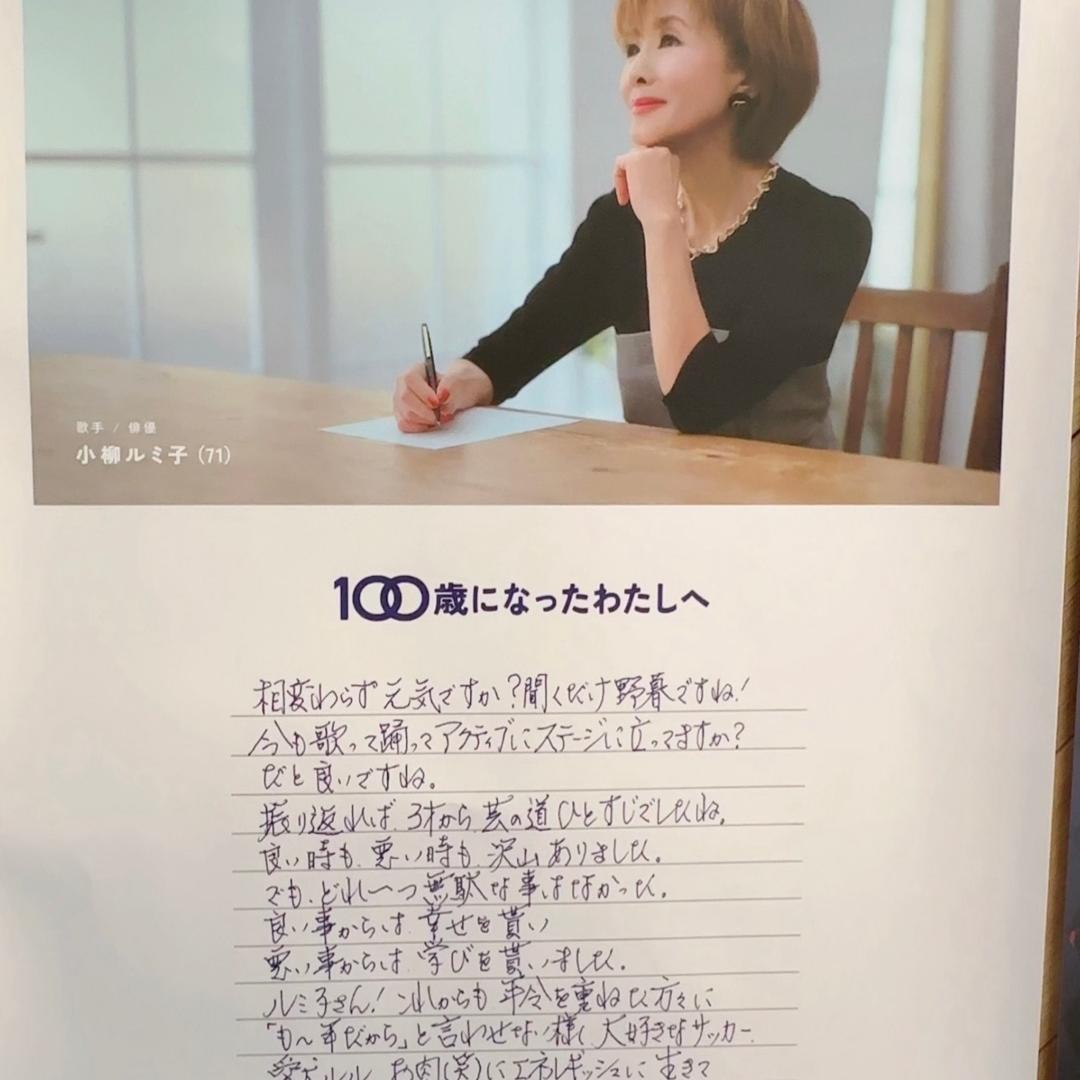 歌手 / 俳優
小柳ルミ子(71)
100歳になったわたしへ
相変わらず元気ですか?聞くだけ野暮ですね!
今も歌って踊ってアクティブにステージに立ってますか?
だと良いですね。
振り返れば、3才から芸の道ひとすじでしたね。
良い時も、悪い時も、沢山ありました。
でも、どれ一つ無駄な事はなかった。
良い事からは、幸せを貰い
悪い事からは、学びを貰いました。
ルミ子さん!これからも年令を重ねた方々に
「も〜年だから」と言わせない様、大好きなサッカー、
愛犬ルル、お肉(笑)にエネルギッシュに生きて